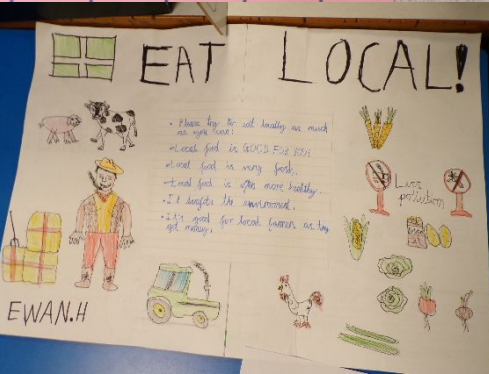 EAT LOCAL!
• Please try to eat locally as much
as you can:
• Local food is GOOD FOR YOU
• Local food is very fresh.
• Local food is often more healthy.
• It benefits the environment.
• It's good for local farmers as they
get money.
Less
pollution
EWAN.H